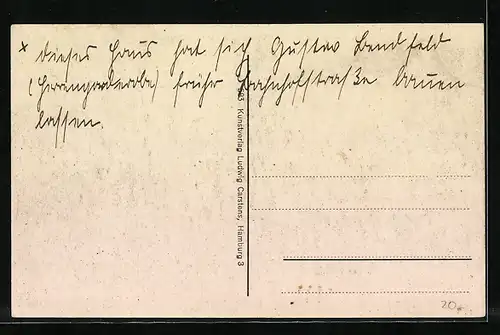 × dieses Haus hat sich Gustav Bendfeld
(Herrengarderobe) früher Bahnhofstraße bauen
lassen.
Kunstverlag Ludwig Carstens, Hamburg 3
20.-